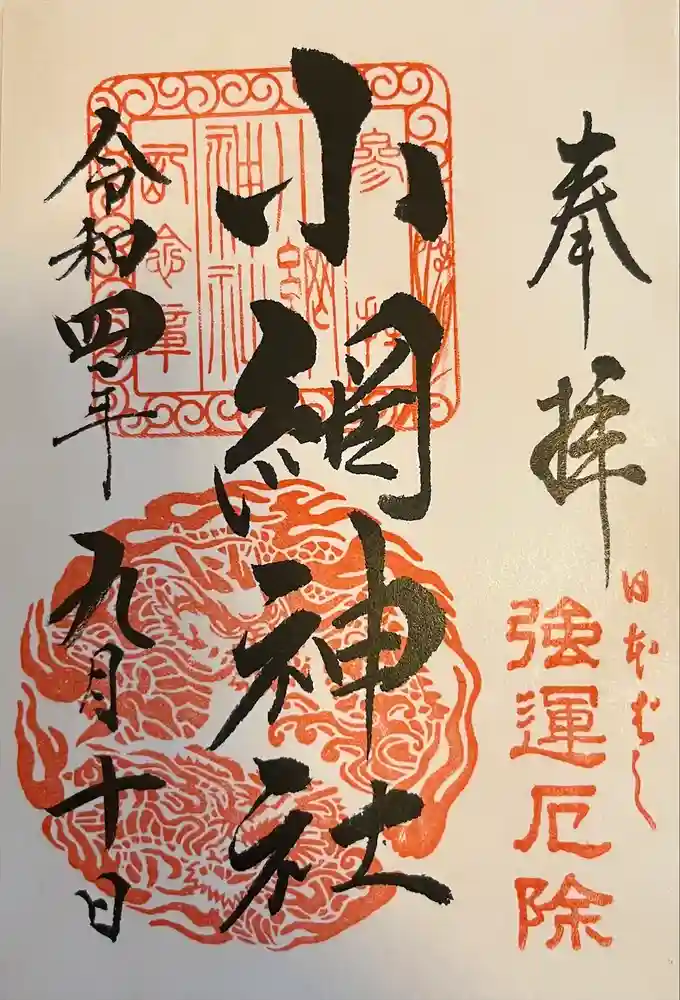 奉拝
日本ばし
強運厄除
小網神社
参拝
小網神社
記念章
令和四年九月十日